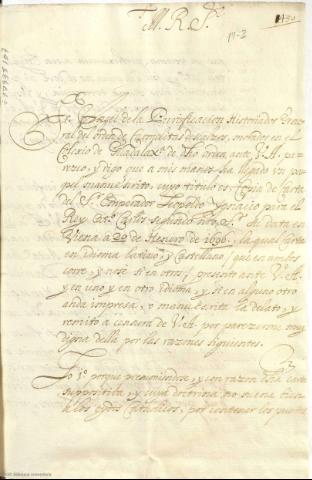 M. R. S.r
111-2
Fr. Angel de la Purificacion Historiador Gene
ral del orden de Carmelitas descalzos, morador en el
Colexio de Guadalax.a de dho orden ante V.A. pa
rezco, y digo que a mis manos ha llegado un pa
pel manuscrito, cuyo titulo es: Copia de Carta
del S.r Emperador Leopoldo Ignacio para el
Rey D.n Carlos segundo nro S.r su data en
Viena a 20 de Henero de 1696. la qual carta
en idioma latino, y Castellano (que en ambos
corre, y no se si en otros) presento ante V.A.
y en uno y en otro idioma, y si en alguno otro
anda impresa, o manuscrita la delato, y
remito a censura de V.A. por parecerme muy
digna della por las razones siguientes.
Lo 1.o porque presumiendose, y con razon dha carta
supposititia, y cuya doctrina no suena bien
a los oydos Catholicos, por contener los puntos